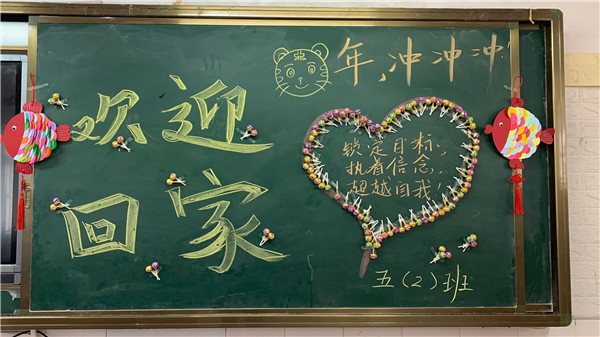 年,冲冲冲!
欢迎
回家
锁定目标,
执着信念,
超越自我!
五(2)班